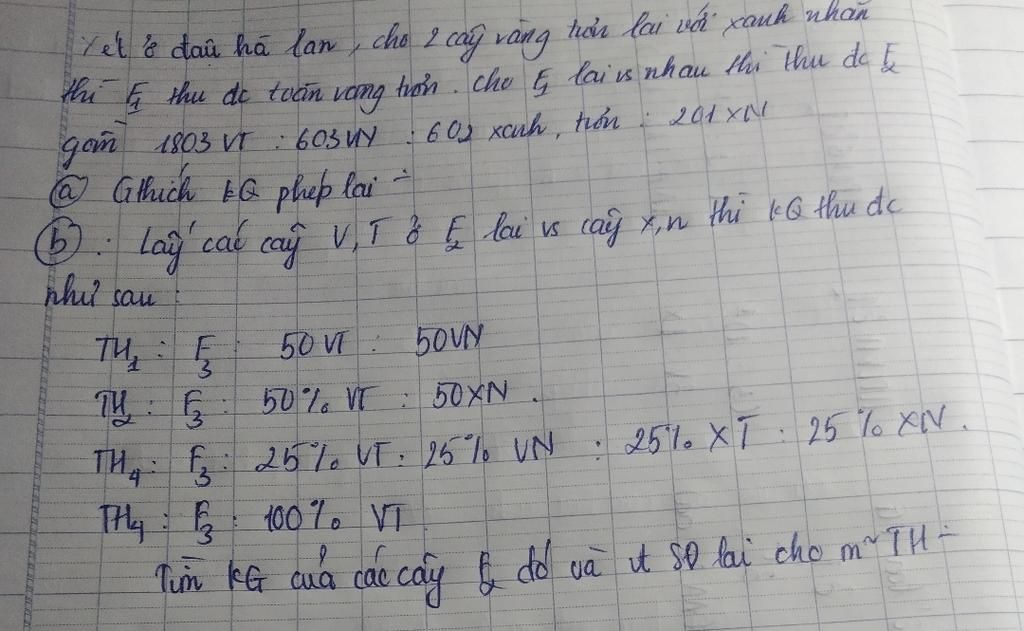 Xét ở đậu hà lan, cho 2 cây vàng trơn lai với xanh nhăn
thì F1 thu đc toàn vàng trơn. Cho F1 lai vs nhau thì thu đc F2
gồm 1803 VT : 603 VN : 602 xanh, trơn : 201 XN
a) Gthích KQ phép lai
b) : Lấy các cây V, T ở F2 lai vs cây x, n thì KQ thu đc
như sau :
TH1 : F3 : 50 VT : 50VN
TH2 : F3 : 50% VT : 50XN.
TH4 : F3 : 25% VT : 25% VN : 25% XT : 25% XN.
TH4 : F3 : 100% VT
Tìm KG của các cây F2 đó và vt SĐ lai cho m~ TH